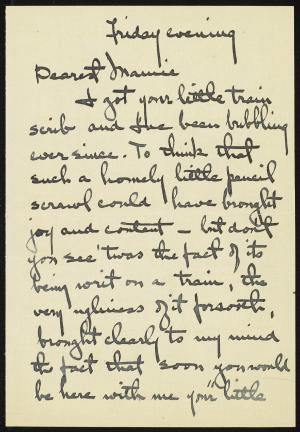 Friday evening
Dearest Mamie
I got your little train
scrib and I've been bubbling
ever since. To think that
such a homely little pencil
scrawl could have brought
joy and content - but don't
you see 'twas the fact of its
being writ on a train, the
very ugliness of it forsooth,
brought clearly to my mind
the fact that soon you would
be here with me your "little